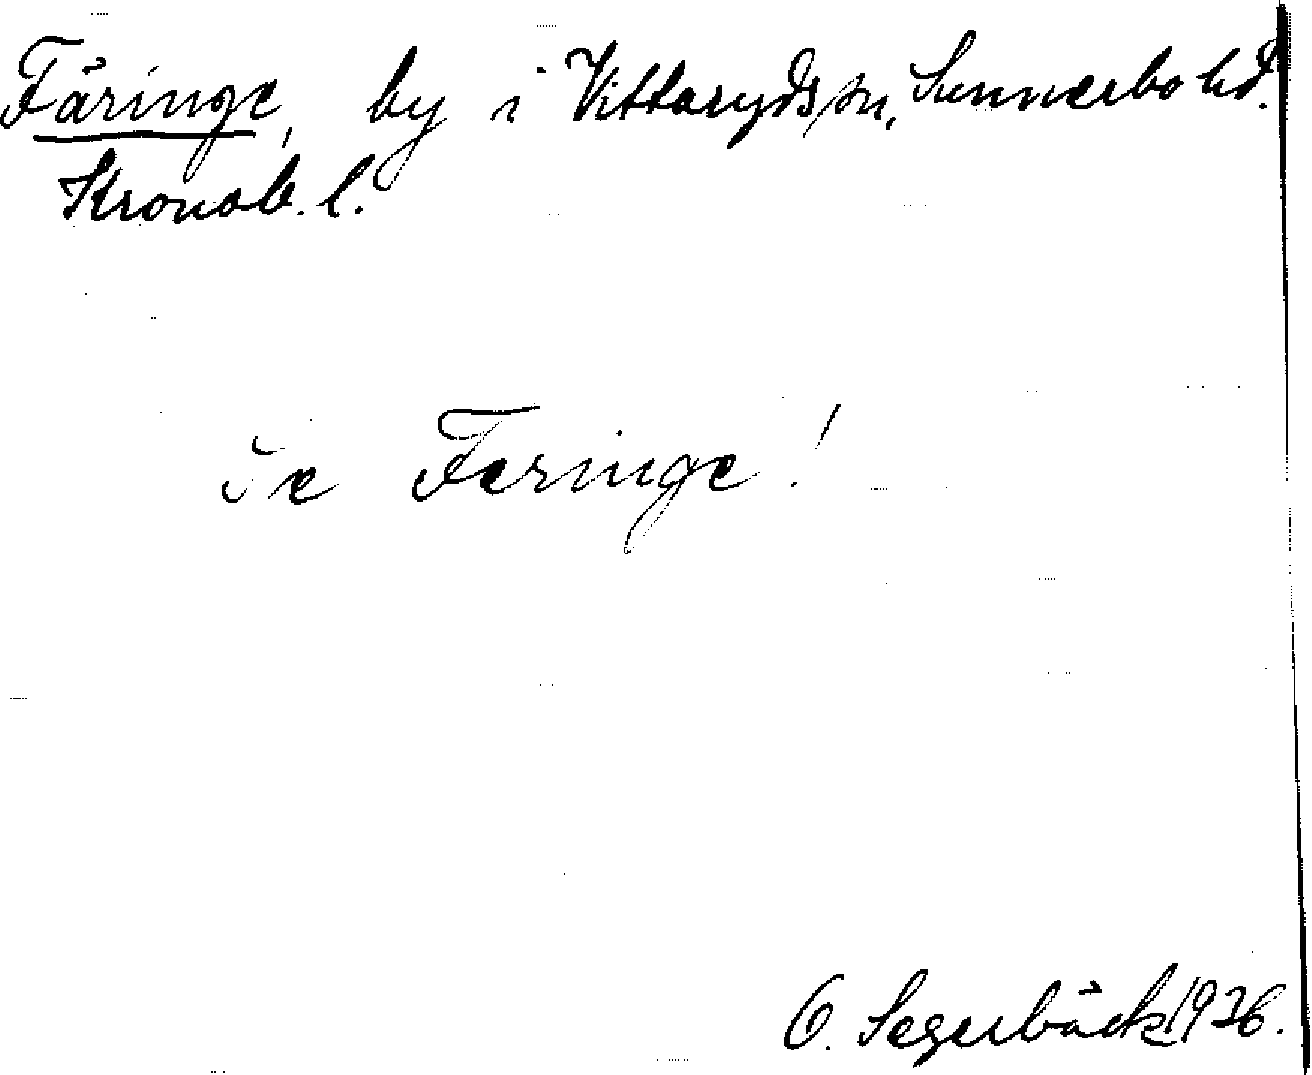 Färinge, by i Vittaryds sn, Sunnerbo hd.
Kronob. l.
se Feringe!
O. Segerbäck 1926.